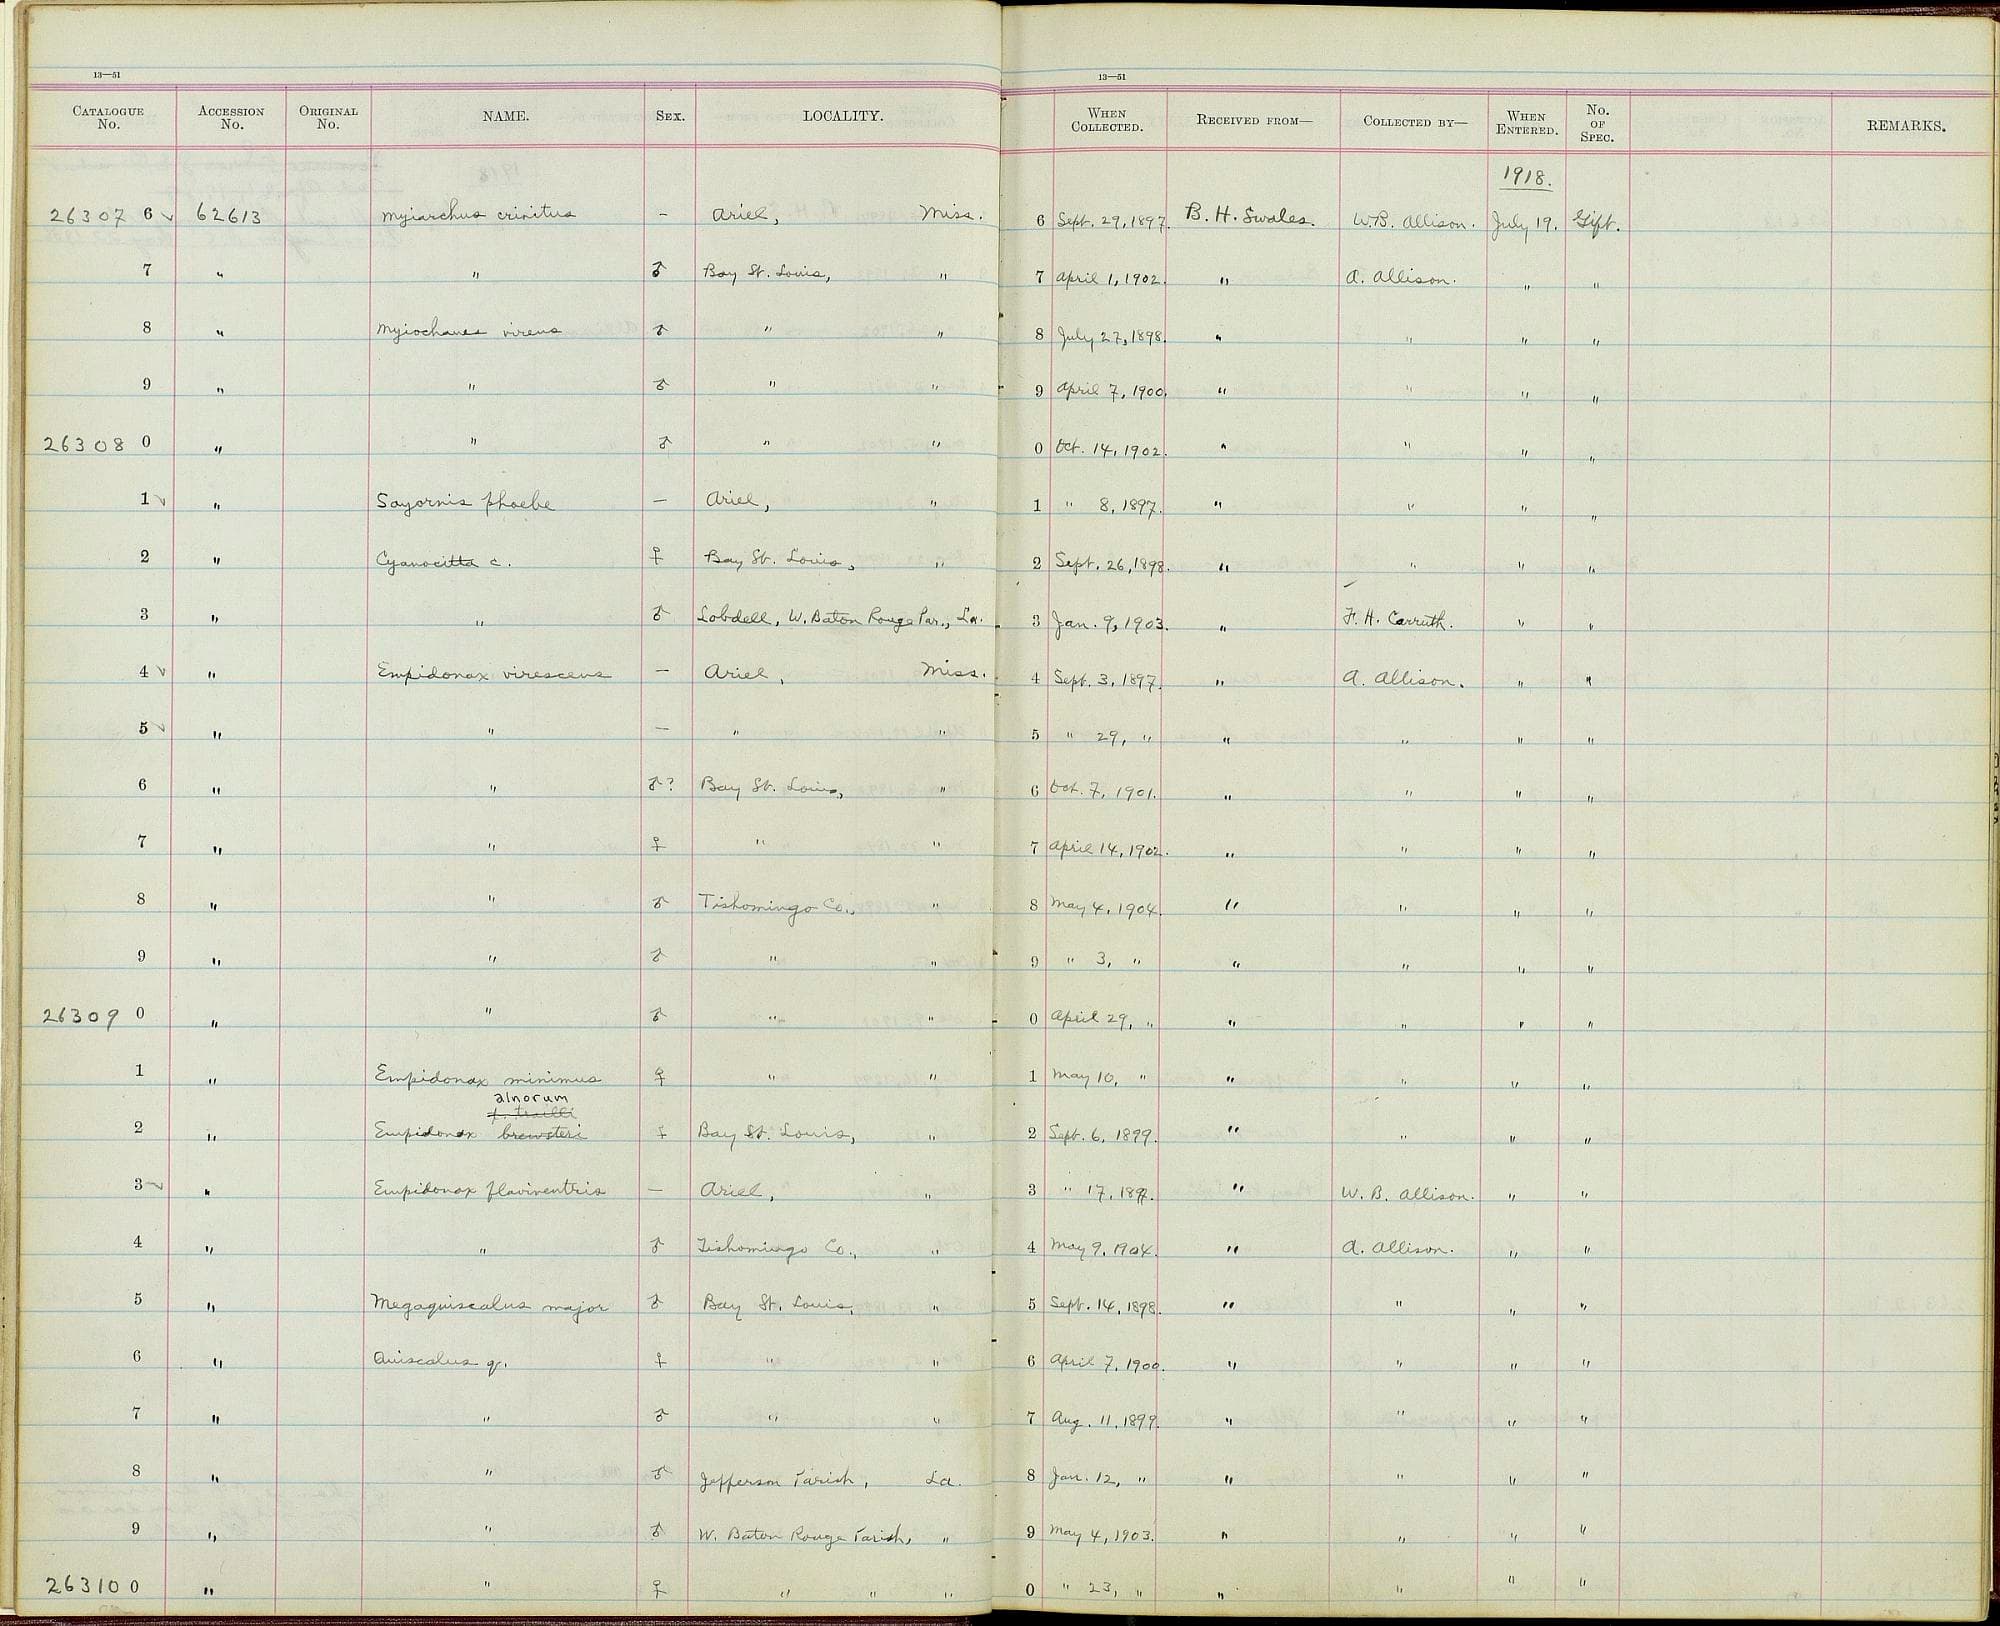 13—51
13—51
CATALOGUE No. ACCESSION No. ORIGINAL No. NAME. SEX. LOCALITY. WHEN COLLECTED. RECEIVED FROM— COLLECTED BY— WHEN ENTERED. No. OF SPEC. REMARKS.
1918.
26307 6 62613 Myiarchus crinitus – Ariel, Miss. 6 Sept. 29, 1897. B. H. Swales. W.B. Allison. July 19. Gift.
7 " " ♂ Bay St. Louis, " 7 April 1, 1902. " A. Allison. " "
8 " Myiochanes virens ♂ " " 8 July 27, 1898. " " " "
9 " " ♂ " " 9 April 7, 1900. " " " "
26308 0 " " ♂ " " 0 Oct. 14, 1902. " " " "
1 " Sayornis phoebe – Ariel, " 1 " 8, 1897. " " " "
2 " Cyanocitta c. ♀ Bay St. Louis, " 2 Sept. 26, 1898. " " " "
3 " " ♂ Lobdell, W. Baton Rouge Par., La. 3 Jan. 9, 1903. " F. H. Carruth. " "
4 " Empidonax virescens – Ariel, Miss. 4 Sept. 3, 1897. " A. Allison. " "
5 " " – " " 5 " 29, " " " " "
6 " " ♂? Bay St. Louis, " 6 Oct. 7, 1901. " " " "
7 " " ♀ " " 7 April 14, 1902. " " " "
8 " " ♂ Tishomingo Co., " 8 May 4, 1904. " " " "
9 " " ♂ " " 9 " 3, " " " " "
26309 0 " " ♂ " " 0 April 29, " " " " "
1 " Empidonax minimus ♀ " " 1 May 10, " " " " "
alnorum
t. trailli
2 " Empidonax brewsteri ♀ Bay St. Louis, " 2 Sept. 6, 1899. " " " "
3 " Empidonax flaviventris – Ariel, " 3 " 17, 1897. " W. B. Allison. " "
4 " " ♂ Tishomingo Co., " 4 May 9, 1904. " A. Allison. " "
5 " Megaquiscalus major ♂ Bay St. Louis, " 5 Sept. 14, 1898. " " " "
6 " Quiscalus q. ♀ " " 6 April 7, 1900. " " " "
7 " " ♂ " " 7 Aug. 11, 1899. " " " "
8 " " ♂ Jefferson Parish, La. 8 Jan. 12, " " " " "
9 " " ♂ W. Baton Rouge Parish, " 9 May 4, 1903. " " " "
26310 0 " " ♀ " " " 0 " 23, " " " " "